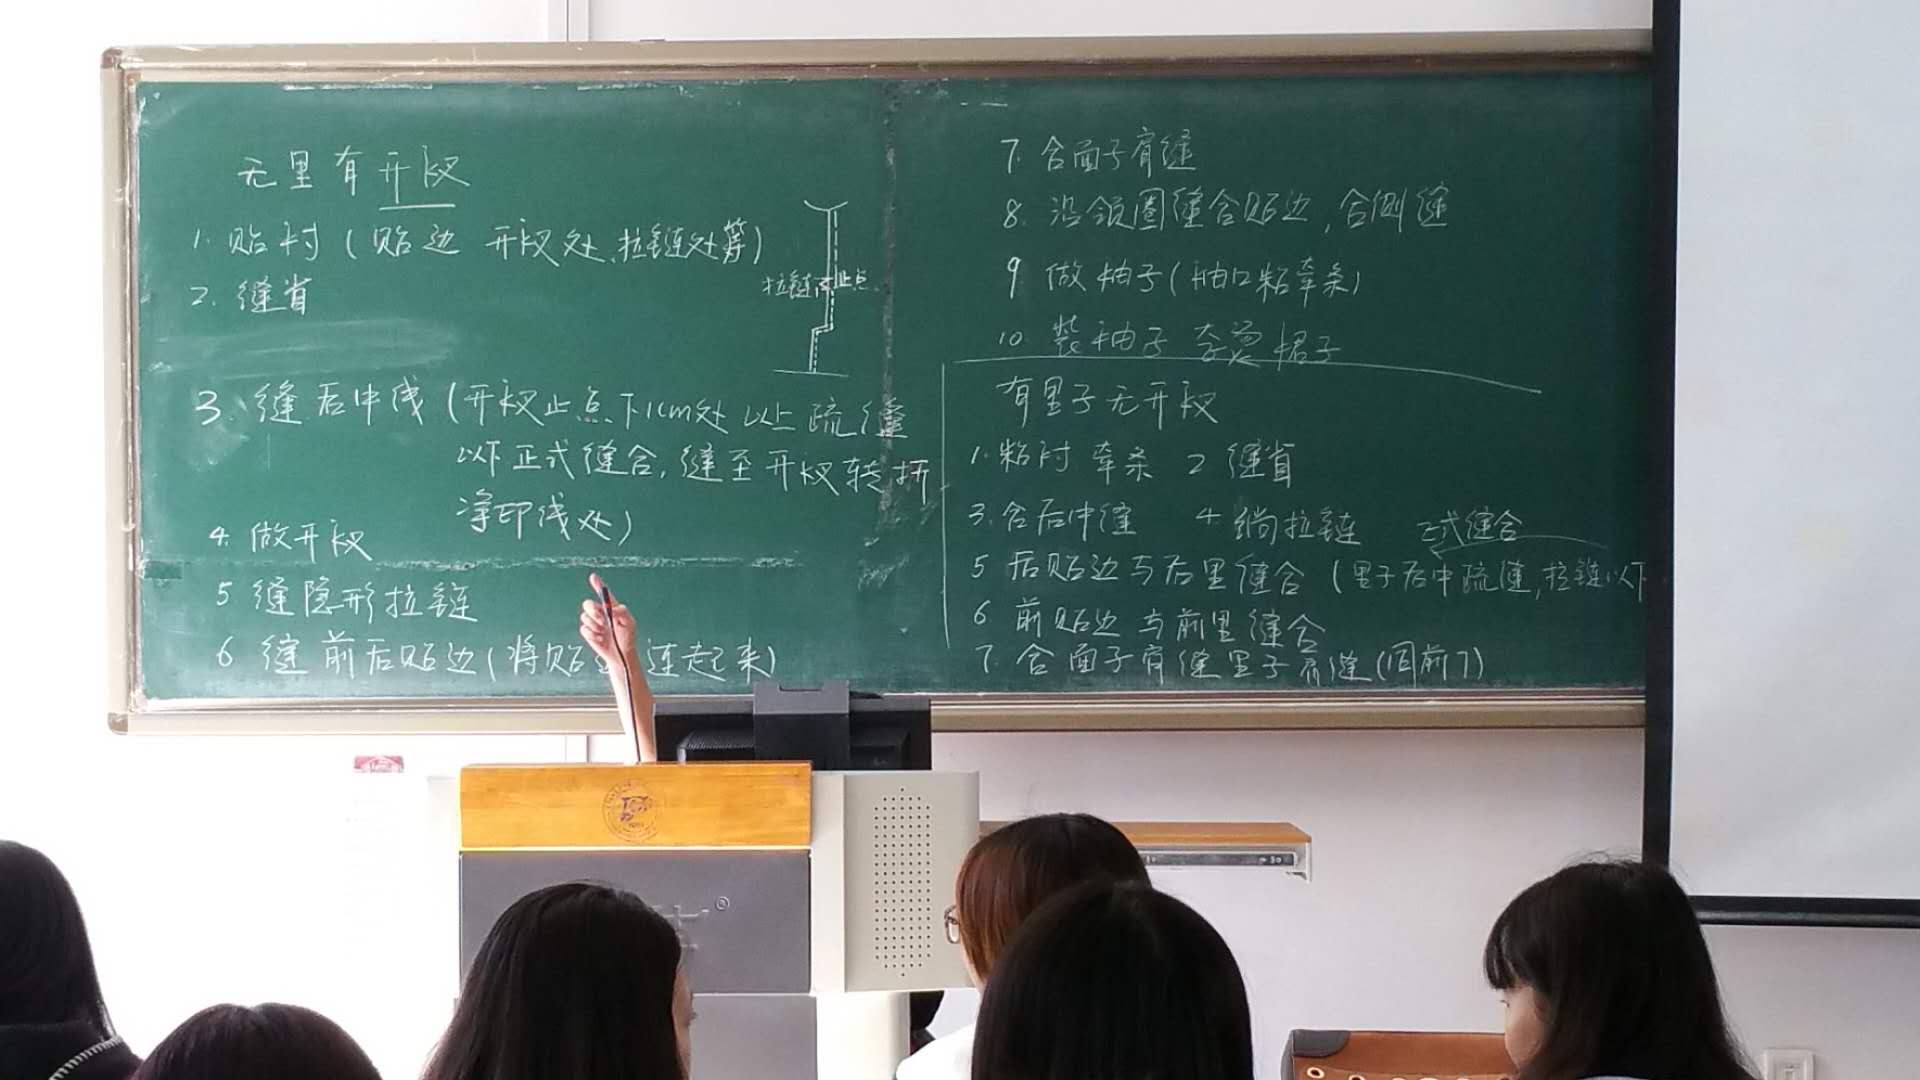 无里有开衩
1. 贴衬（贴边 开衩处、拉链处等）
2. 缝省
拉链 止点
3. 缝后中线（开衩止点下1cm处 以上疏缝
以下正式缝合, 缝至开衩转折
净印线处）
4. 做开衩
5 缝隐形拉链
6 缝前后贴边（将贴 连起来）
7. 合面子肩缝
8. 沿领圈缝合贴边, 合侧缝
9 做袖子（袖口粘牵条）
10 装袖子 裙子
有里子无开衩
1. 粘衬 牵条 2 缝省
3. 合后中缝 4 绱拉链 正式缝合
5 后贴边与后里缝合（里子后中疏缝, 拉链以下
6 前贴边与前里缝合
7. 合面子肩缝里子肩缝（同前7）